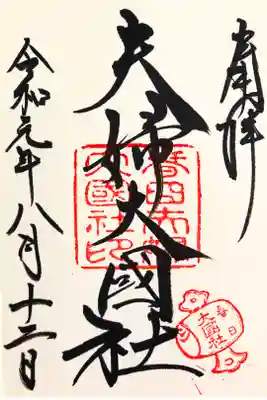 奉拝
夫婦大國社
春日大社
夫婦大國社印
春日
大國社
令和元年八月十二日